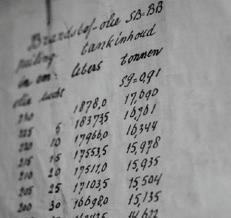 Brandstof-olie SB=BB
peiling tankinhoud
in cm: liters tonnen
olie lucht sg=0,91
230 1878,0 17,090
225 5 18373,5 16,761
220 10 17966,0 16,344
215 15 17553,5 15,978
210 20 17511,0 15,935
205 25 17103,5 15,504
200 30 16698,0 15,135